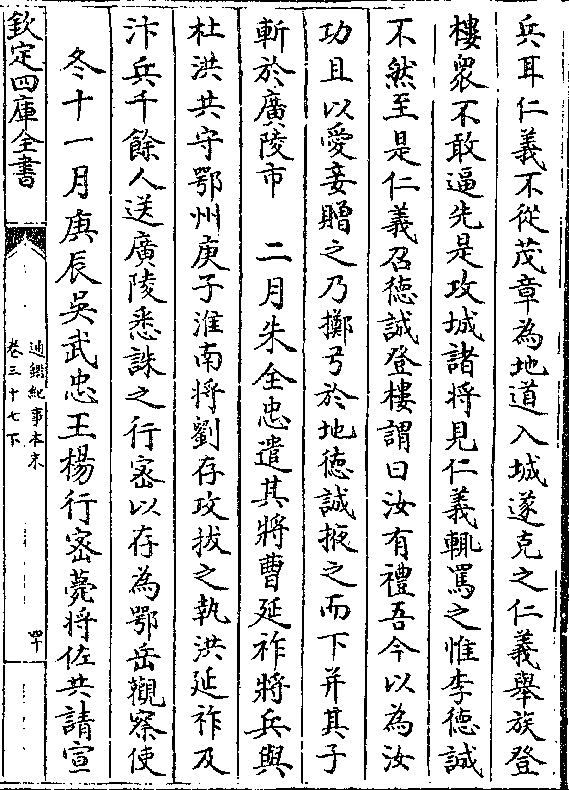 兵耳仁義不從茂章為地道入城遂克之仁義舉族登
樓衆不敢逼先是攻城諸將見仁義輒罵之惟李德誠
不然至是仁義召德誠登樓謂曰汝有禮吾今以為汝
功且以愛妾贈之乃擲弓於地德誠掖之而下并其子
斬於廣陵市　二月朱全忠遣其將曹延祚將兵與
杜洪共守鄂州庚子淮南將劉存攻拔之執洪延祚及
汴兵千餘人送廣陵悉誅之行密以存為鄂岳觀察使
冬十一月庚辰吳武忠王楊行密薨將佐共請宣
欽定四庫全書
通鑑紀事本末
卷三十七下
四十